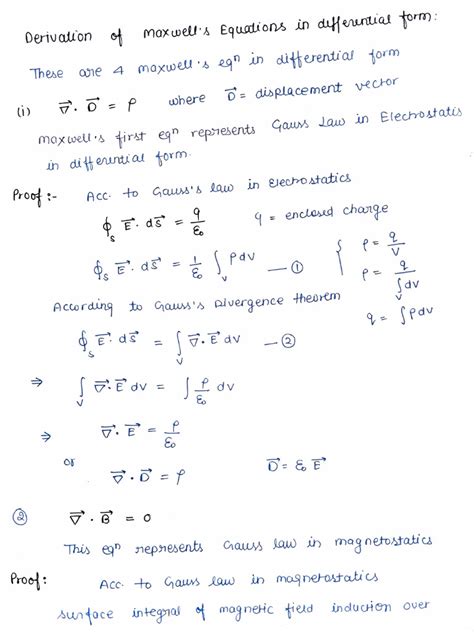 Derivation of Maxwell's Equations in differential form:
These are 4 maxwell's eqⁿ in differential form
(i) ∇⃗ · D⃗ = ρ where D⃗ = displacement vector
maxwell's first eqⁿ represents Gauss Law in Electrostatis
in differential form.
Proof :- Acc. to Gauss's law in Electrostatics
∮ₛ E⃗ · dS⃗ = q/ε₀ q = enclosed charge
∮ₛ E⃗ · dS⃗ = 1/ε₀ ∫ᵥ ρdv — ① { ρ = q/V
ρ = q/∫ᵥdv
q = ∫ρdv
According to Gauss's Divergence theorem
∮ₛ E⃗ · dS⃗ = ∫ᵥ ∇⃗ · E⃗ dv — ②
⇒ ∫ᵥ ∇⃗ · E⃗ dv = ∫ ρ/ε₀ dv
⇒ ∇⃗ · E⃗ = ρ/ε₀
or D⃗ = ε₀ E⃗
∇⃗ · D⃗ = ρ
② ∇⃗ · B⃗ = 0
This eqⁿ represents Gauss law in magnetostatics
Proof: Acc. to Gauss law in magnetostatics
surface integral of magnetic field induction over